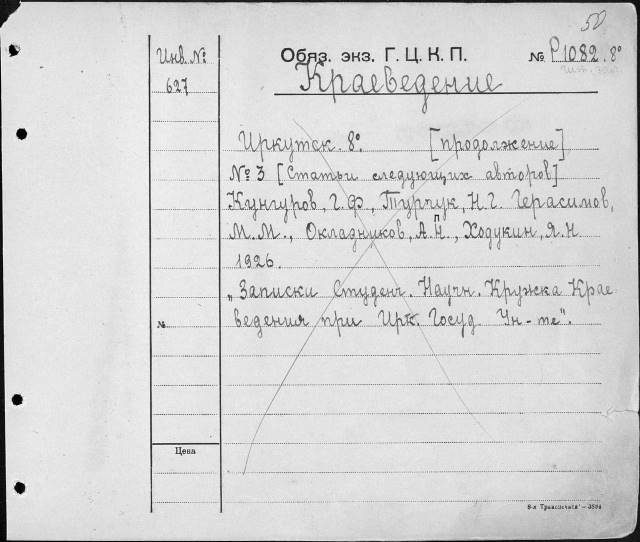 50
Инв. №
627
Обяз. экз. Г. Ц. К. П. № Р1082. 8°
Краеведение
Иркутск. 8°. [продолжение]
№ 3 [Статьи следующих авторов]
Кунгуров, Г. Ф., Турчук, Н. Г. Герасимов,
М. М., Окладников, А. П., Ходукин, Я. Н
1926.
„Записки Студенч. Научн. Кружка Крае
ведения при Ирк. Госуд Ун-те".
№
Цена